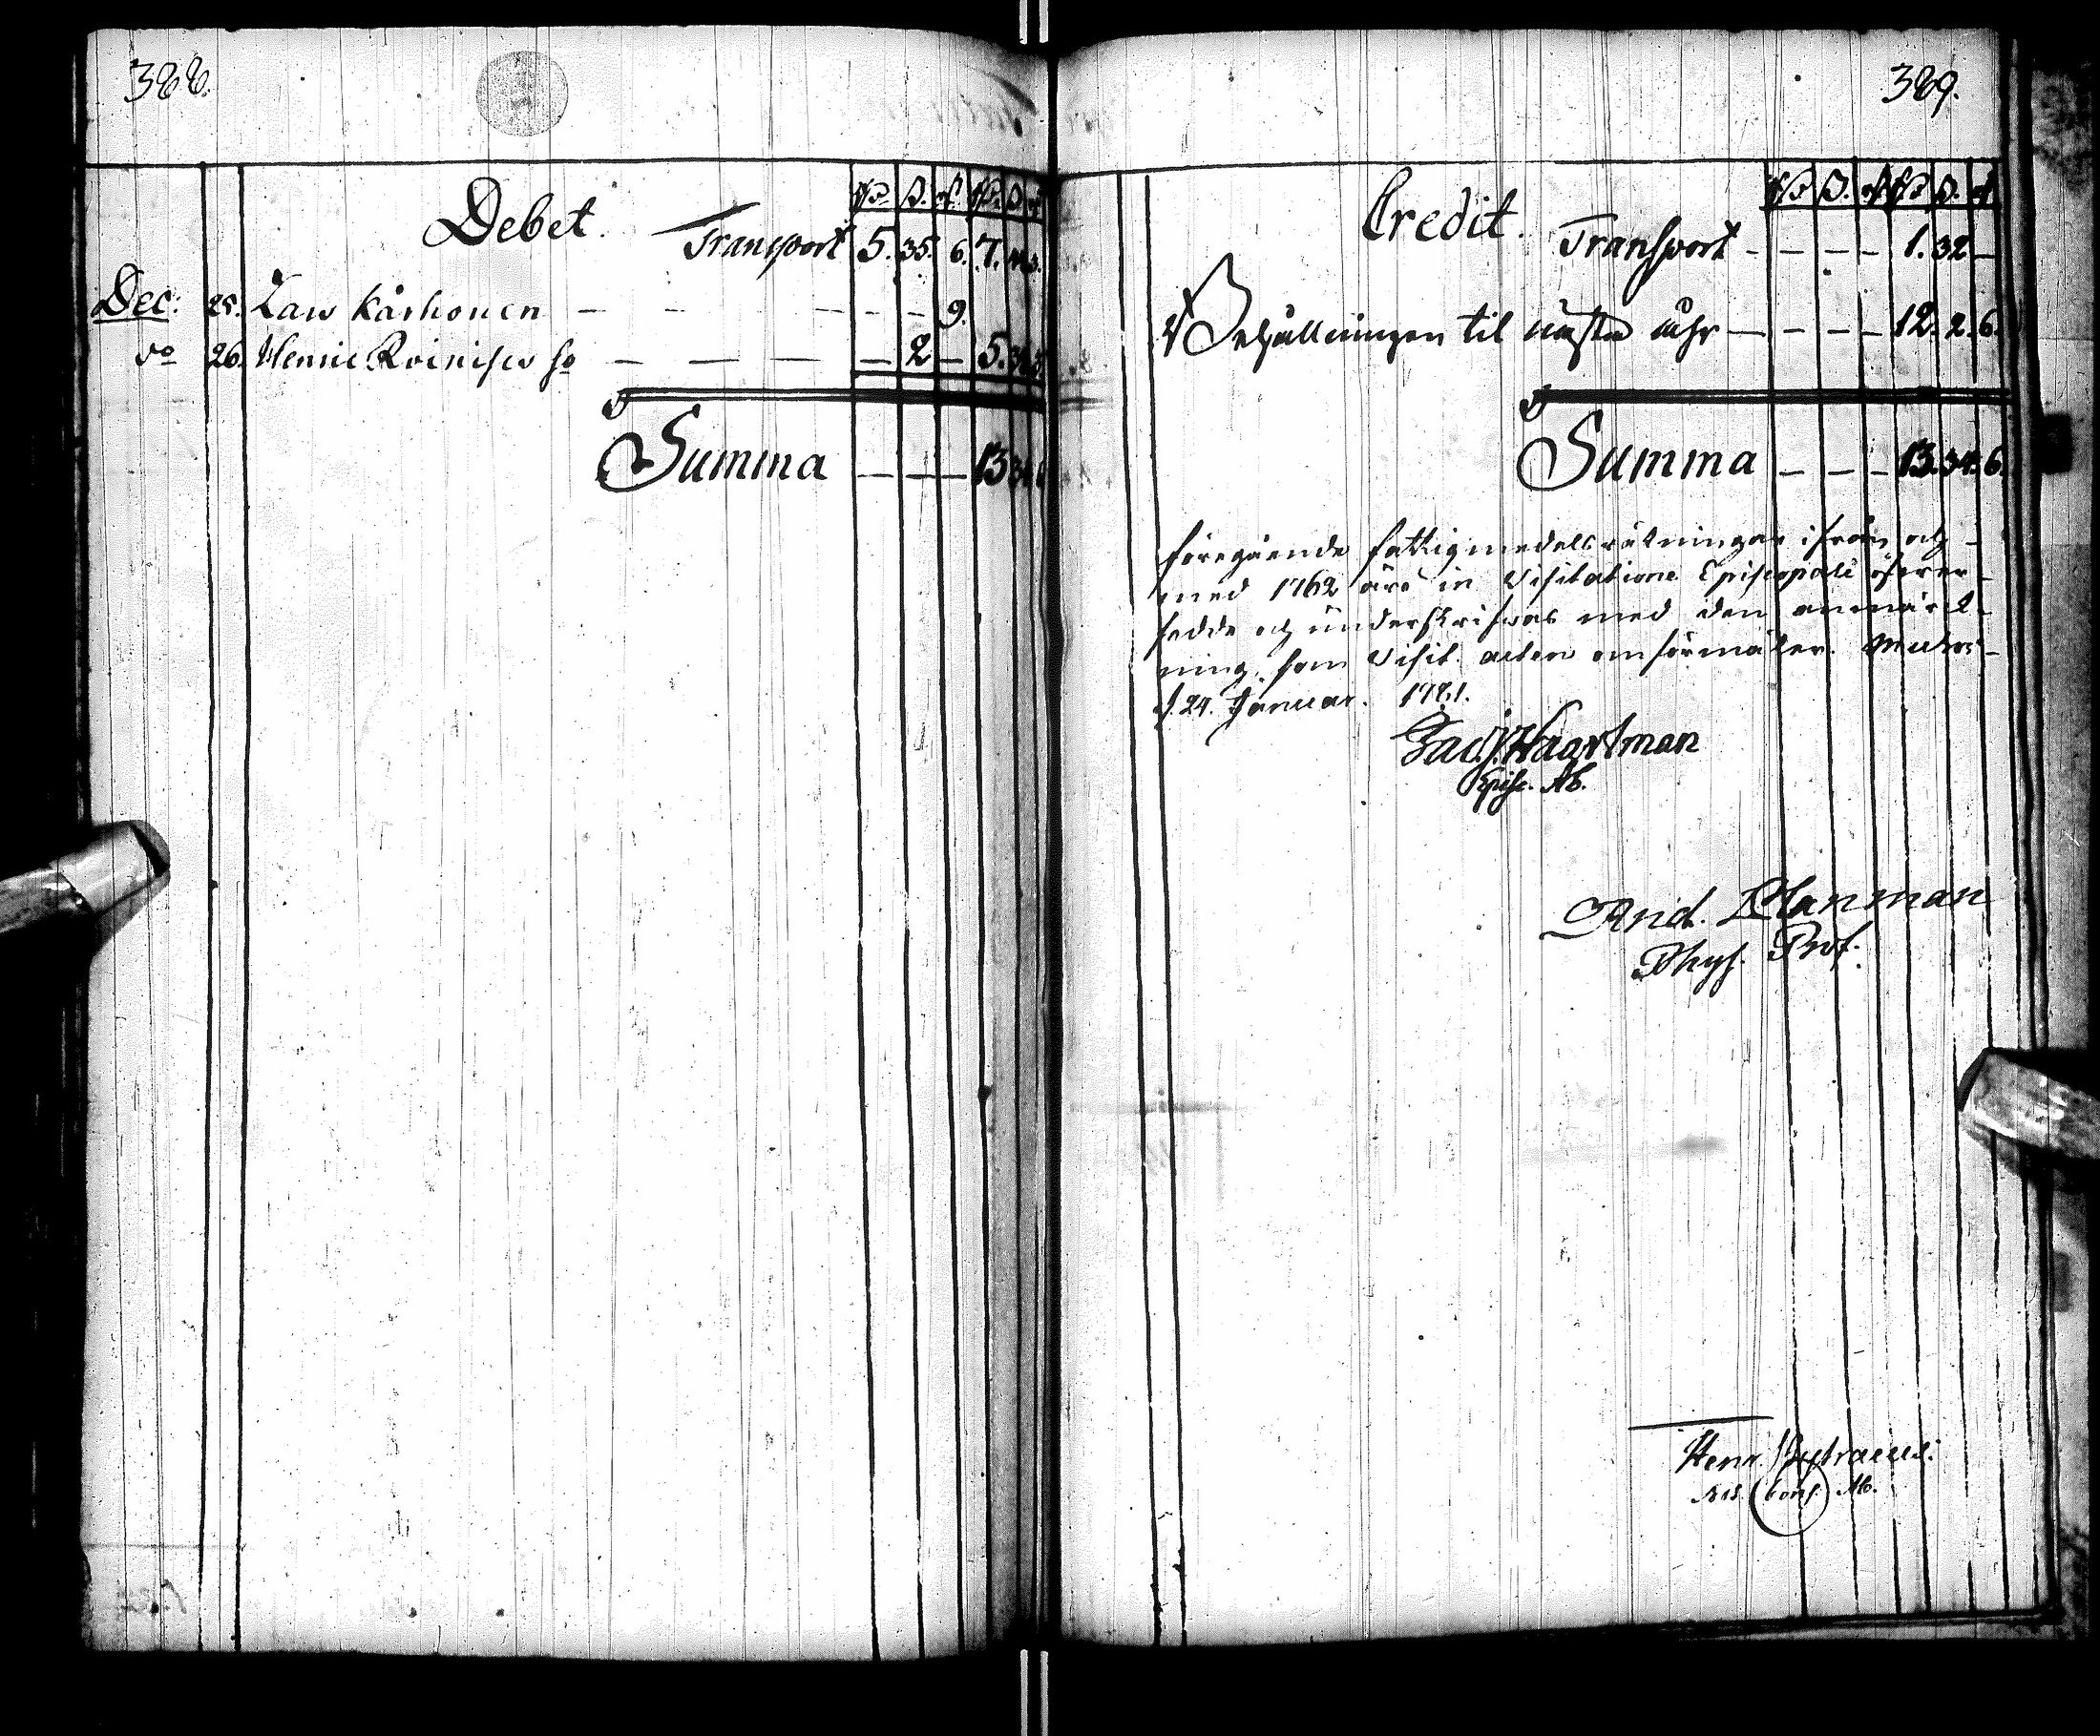 388.
Debet.
Rd. s. rf. Rd. s. rf.
Transport 5. 35. 6. 7.
Dec: 25. Lars Kårhonen — — — — — — 9.
do 26. Henric Roinises so — — — — 2 — 5.
Summa — — — 13
389.
Credit.
Rd. s. rf. Rd. s. rf.
Transport - - - - 1. 32 -
Behållningen til nästa åhr - - - - 12. 2. 6.
Summa - - - 13. 34. 6.
föregående fattigmedels räkningar ifrån och
med 1762 äro in Visitatione Episcopali öfwer-
sedde och underskrifwas med den anmärk-
ning, som Visit. acten omförmäler.
d. 24. Januar. 1781.
Jac. Haartman
Episc. Ab.
And. Planman
Phys. Prof.
Henr.
Cons. Ab.